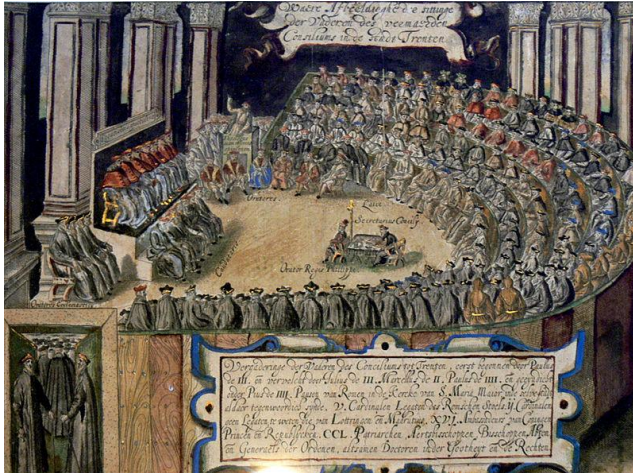 Waere Afbeeldinghe de sittinge
der Vaderen des vermaerden
Consiliums in de Stadt Trenten
Oratores
Secretarius Concilij
Orator Regis Philippi
Vergaderinge der Vaderen des Conciliums tot Trenten, eerst begonnen door Paulus
de III. en vervolcht door Julius de III. Marcellus de II. Paulus de IIII. en geeyndicht
door Pius de IIII. Pausen van Romen in de Kercke van S. Maria Maior,
aldaer tegenwoordich V. Cardinalen Legaten des Roomschen Stoels, II. Cardinalen
geen Legaten te weten die van Lottringen en Madrutius, XVI. Ambassadeurs van
Princen en Republijcken, CCL. Patriarchen Aertsbisschoppen, Bisschoppen, Abten
en Generaels der Ordenen, altsamen Doctoren in der Godtheyt en de Rechten